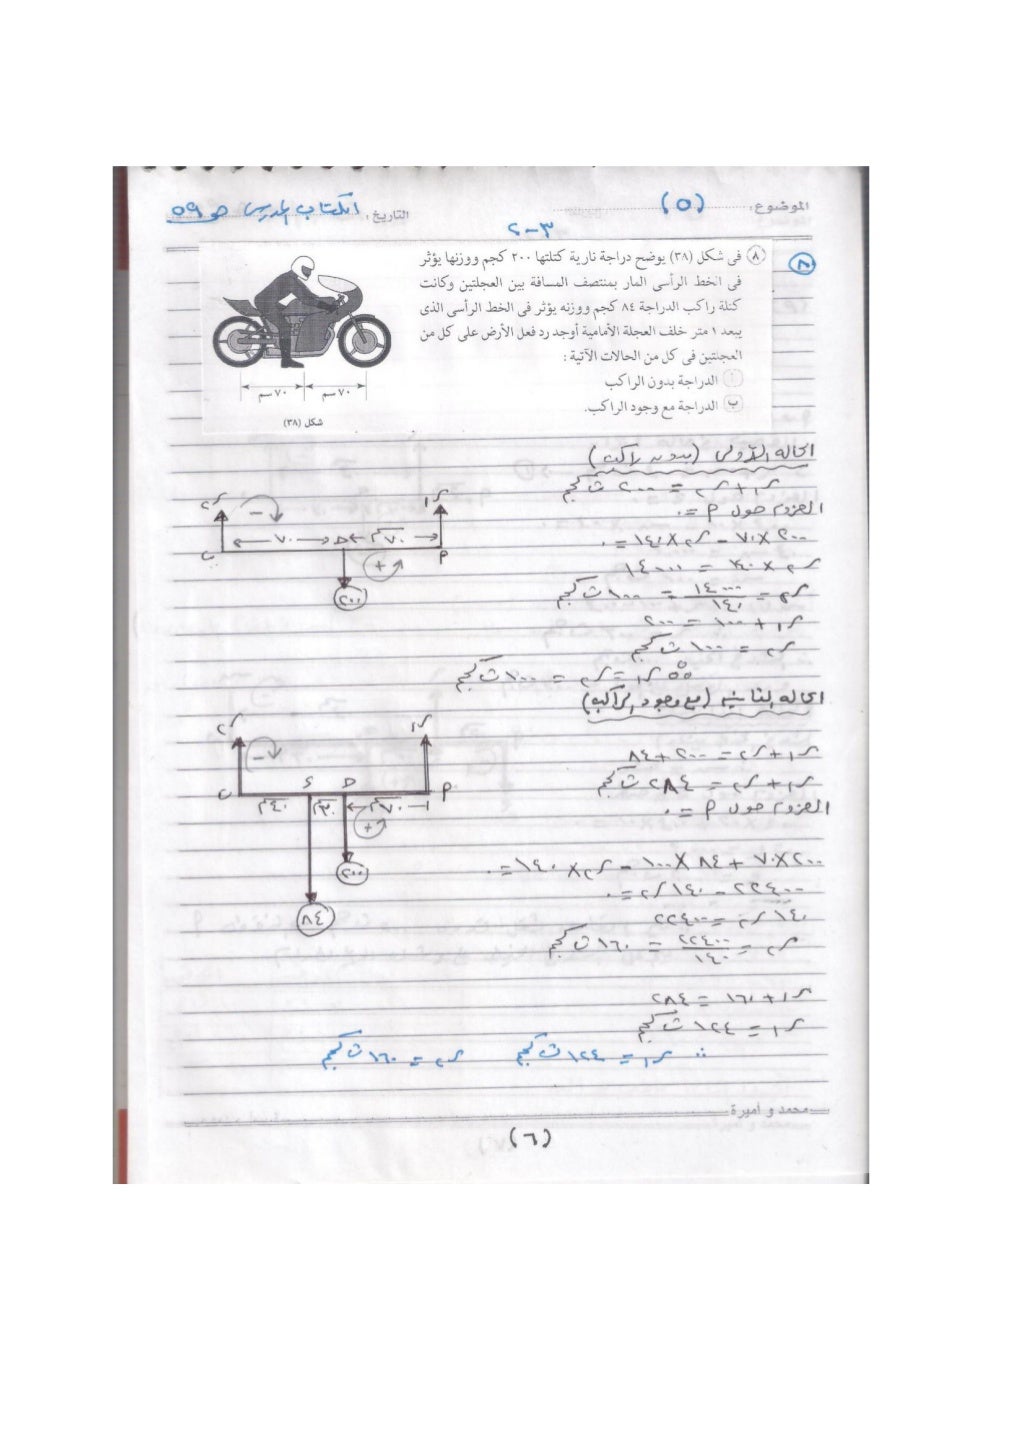 الموضوع: (٥)
التاريخ: الكتاب المدرسى ص ٥٩
٣-٢
٨
٨ فى شكل (٣٨) يوضح دراجة نارية كتلتها ٢٠٠ كجم ووزنها يؤثر
فى الخط الرأسى المار بمنتصف المسافة بين العجلتين وكانت
كتلة راكب الدراجة ٨٤ كجم ووزنه يؤثر فى الخط الرأسى الذى
يبعد ١ متر خلف العجلة الأمامية أوجد رد فعل الأرض على كل من
العجلتين فى كل من الحالات الآتية :
أ الدراجة بدون الراكب
ب الدراجة مع وجود الراكب.
٧٠ سم ٧٠ سم
شكل (٣٨)
الحاله الأولى (بدون راكب)
ر١ + ر٢ = ٢٠٠ ث كجم
العزوم حول P = ٠
٢٠٠ × ٧٠ - ر٢ × ١٤٠ = ٠
ر٢ × ١٤٠ = ١٤٠٠٠
ر٢ = ١٤٠٠٠ / ١٤٠ = ١٠٠ ث كجم
ر١ + ١٠٠ = ٢٠٠
ر٢ = ١٠٠ ث كجم
∴ ر١ = ر٢ = ١٠٠ ث كجم
ر١ ر٢
- +
P ٧٠ سم ح ٧٠ ب
٢٠٠
الحاله الثانيه (مع وجود الراكب)
ر١ + ر٢ = ٢٠٠ + ٨٤
ر١ + ر٢ = ٢٨٤ ث كجم
العزوم حول P = ٠
٢٠٠ × ٧٠ + ٨٤ × ١٠٠ - ر٢ × ١٤٠ = ٠
٢٢٤٠٠ - ١٤٠ ر٢ = ٠
١٤٠ ر٢ = ٢٢٤٠٠
ر٢ = ٢٢٤٠٠ / ١٤٠ = ١٦٠ ث كجم
ر١ + ١٦٠ = ٢٨٤
ر١ = ١٢٤ ث كجم
∴ ر١ = ١٢٤ ث كجم ر٢ = ١٦٠ ث كجم
ر١ ر٢
- +
P ح ء ب
٧٠ سم ٣٠ سم ٤٠ سم
٢٠٠
٨٤
محمد و أميرة
(٦)